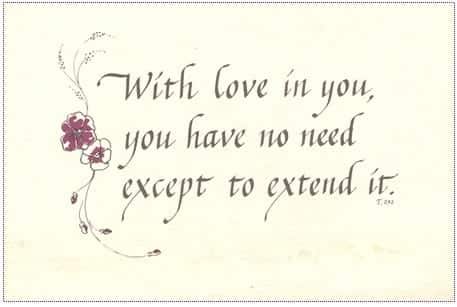 With love in you,
you have no need
except to extend it.
T. 292